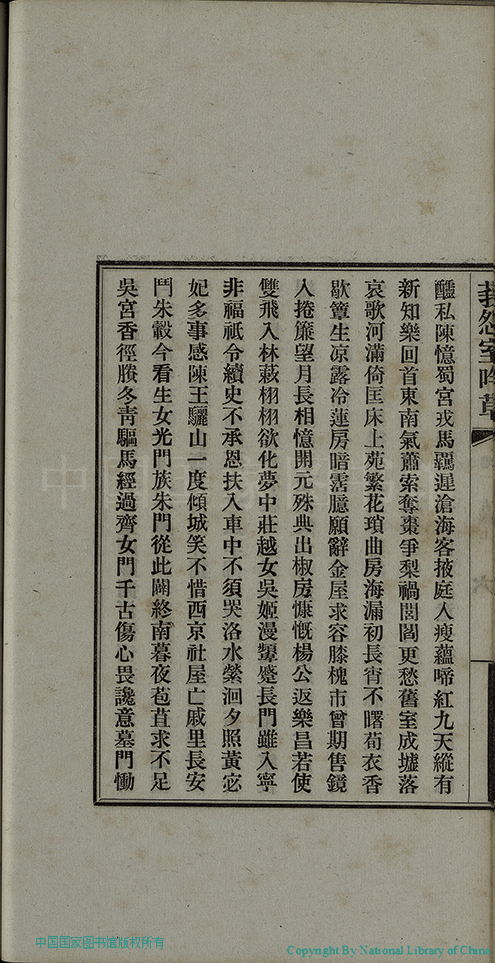 怨室吟草
醺私陳憶蜀宮戎馬羈遲滄海客掖庭人瘦蘊啼紅九天縱有
新知樂回首東南氣蕭索奪棗爭梨禍鬩閻更愁舊室成墟落
哀歌河滿倚匡床上苑繁花瑣曲房海漏初長宵不曙荀衣香
歇簟生凉露冷蓮房暗霑臆願辭金屋求容膝槐市曾期售鏡
人捲簾望月長相憶開元殊典出椒房慷慨楊公返樂昌若使
雙飛入林薮栩栩欲化夢中莊越女吳姬漫顰蹙長門雖入寧
非福祇令續史不承恩扶入車中不須哭洛水縈洄夕照黃宓
妃多事感陳王驪山一度傾城笑不惜西京社屋亡戚里長安
鬥朱轂今看生女光門族朱門從此闢終南暮夜苞苴求不足
吳宮香徑賸冬靑驅馬經過齊女門千古傷心畏讒意墓門慟
中国国家图书馆版权所有
Copyright By National Library of China